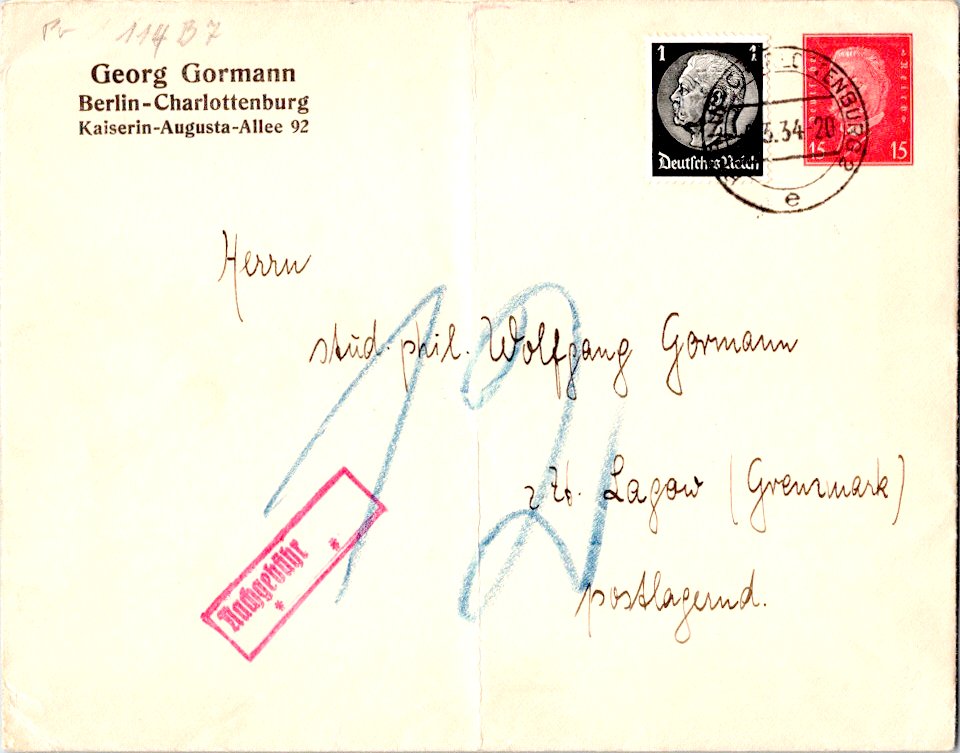 114 B 7
Georg Gormann
Berlin-Charlottenburg
Kaiserin-Augusta-Allee 92
1 1
Deutsches Reich
15 15
3.34-20
e
Herrn
stud. phil. Wolfgang Gormann
12
z Zt. Lagow (Grenzmark)
postlagernd.
Nachgebühr